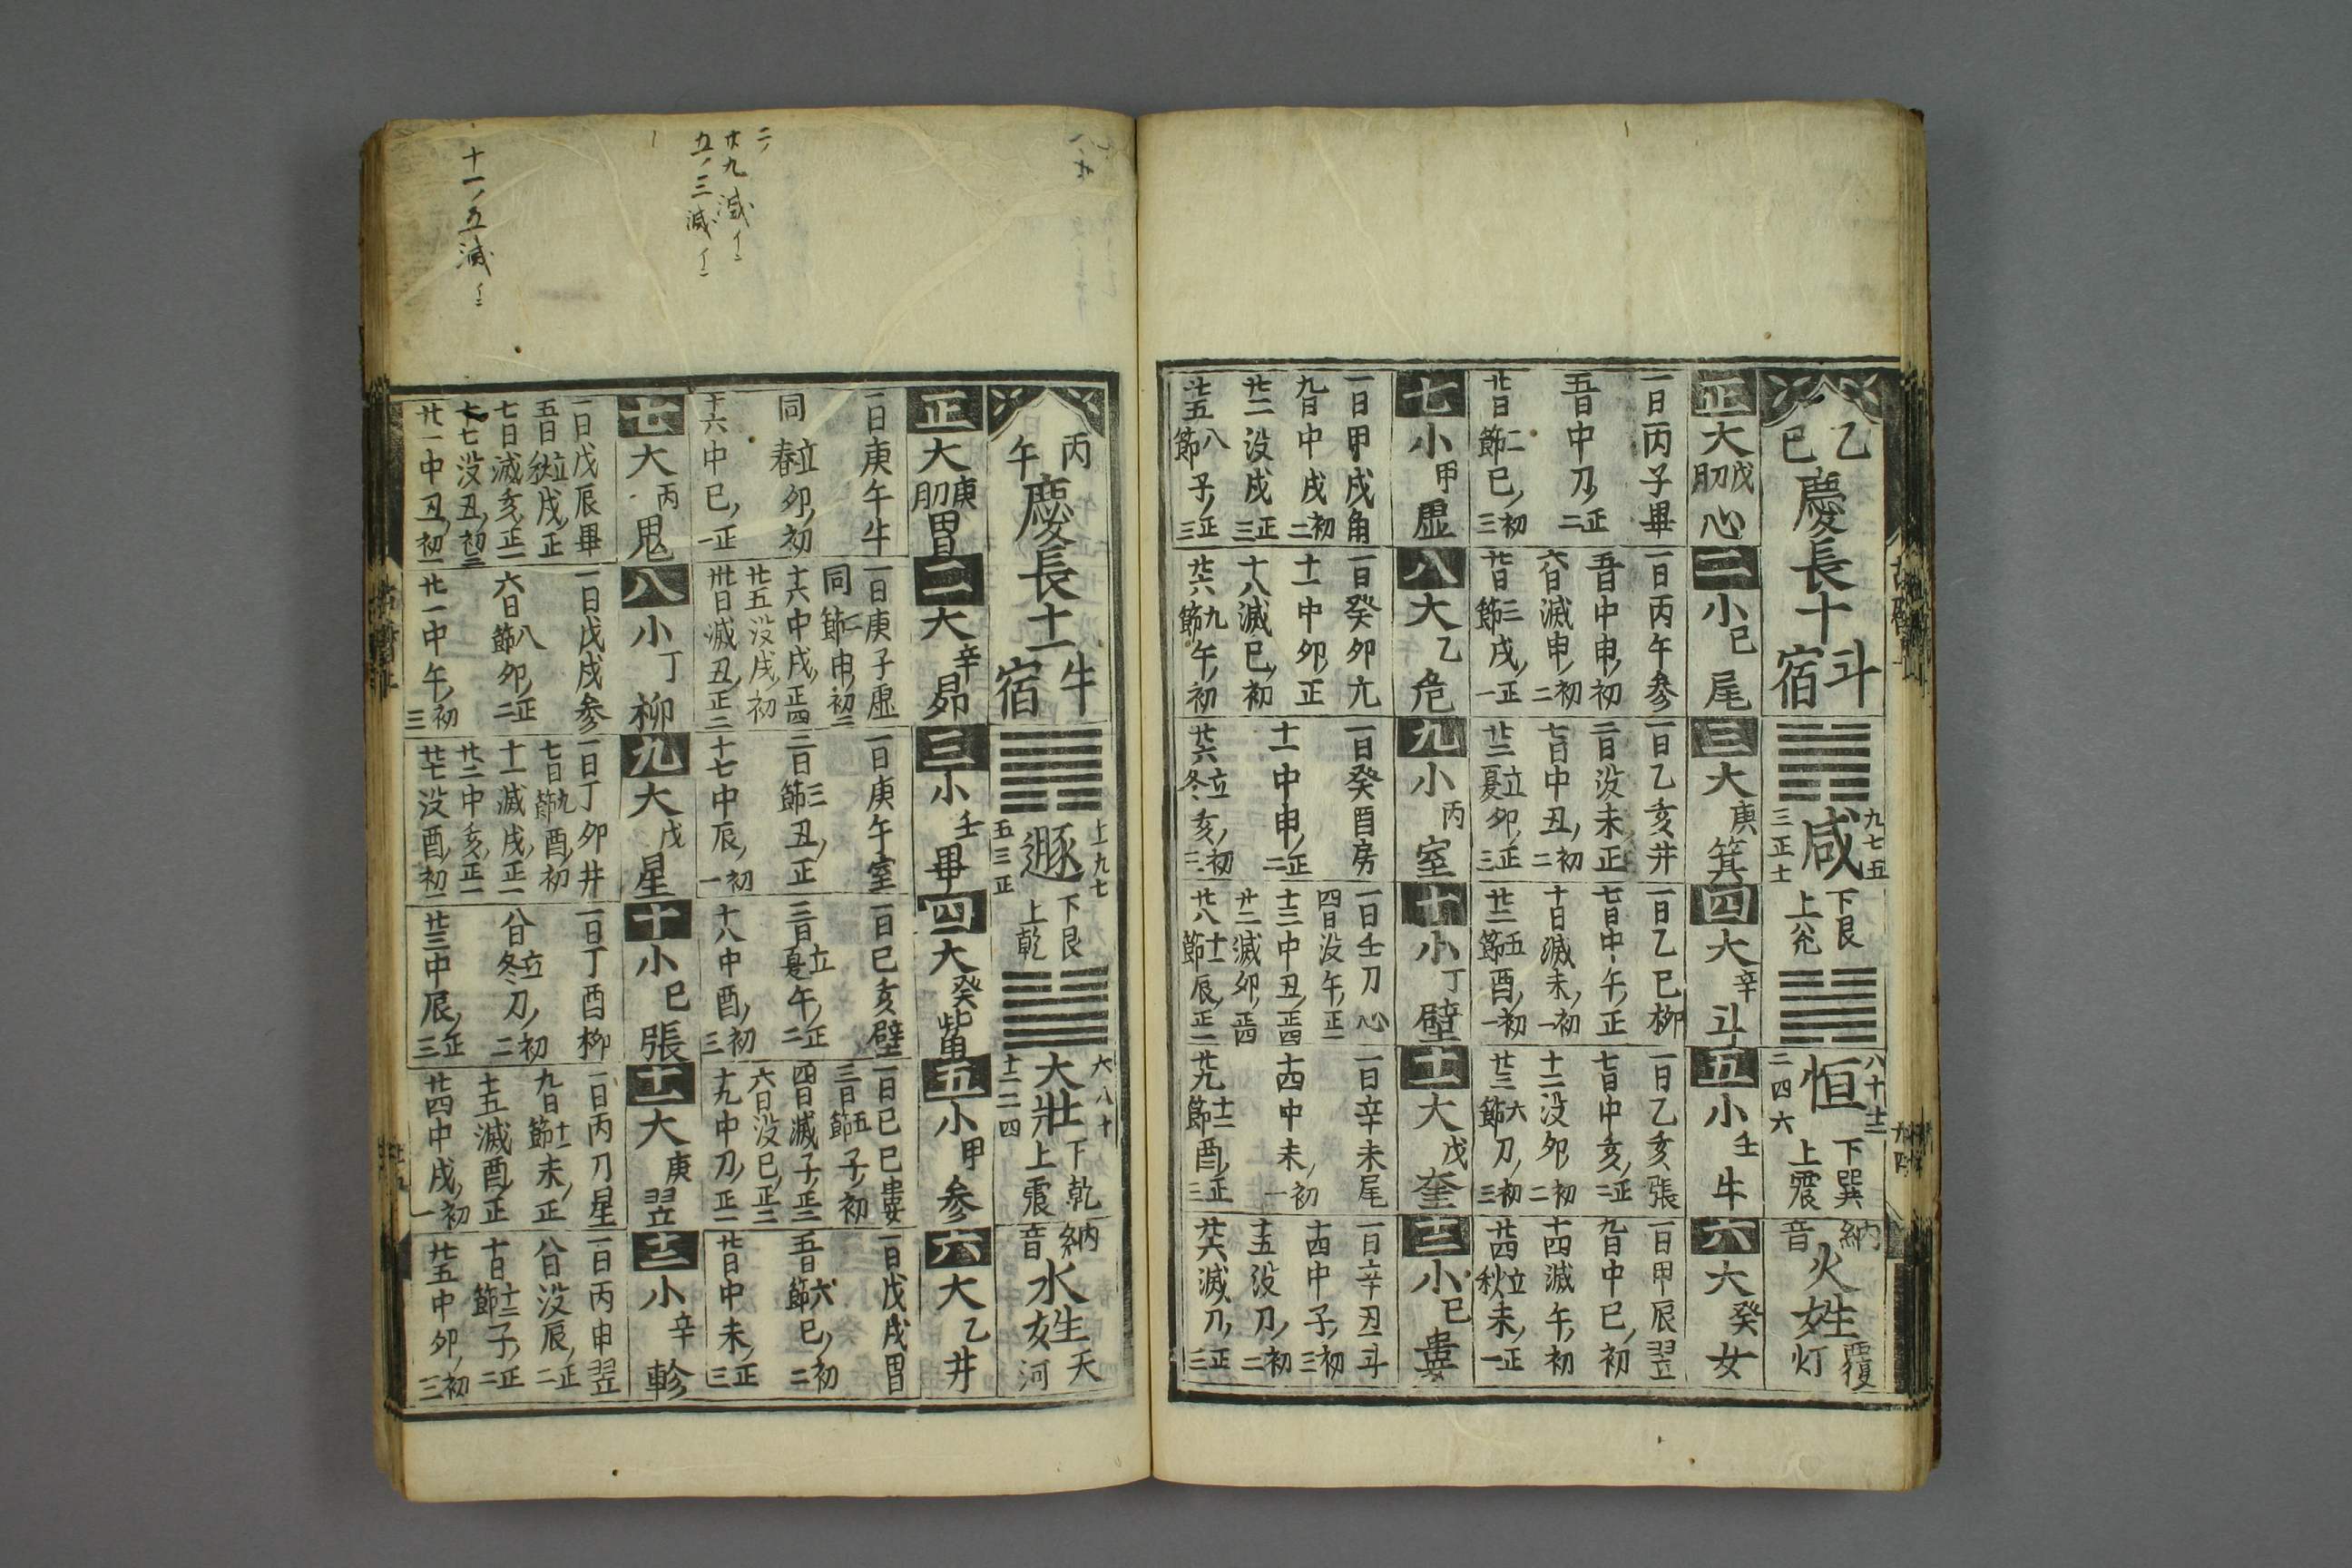 乙巳
慶長十
斗宿
咸
九七五
三正十
下艮
上兊
恒
八十十二
二四六
下巽
上震
納音
火姓
覆灯
正大
戊
心
一日丙子畢
五日中刀正二
廿日二節巳初三
二小
己
尾
一日丙午参
五日中申初
六日滅申初二
廿日三節戌正一
三大
庚
箕
一日乙亥井
二日没未正
七日中丑初二
廿二立夏卯正三
四大
辛
斗
一日乙巳柳
七日中午正
十日滅未初一
廿二五節酉初一
五小
壬
牛
一日乙亥張
七日中亥正二
十二没卯初二
廿三六節刀初三
六大
癸
女
一日甲辰翌
九日中巳初
十四滅午初
廿四立秋未正一
七小
甲
虚
一日甲戌角
九日中戌初二
廿二没戌正三
廿五八節子正三
八大
乙
危
一日癸卯亢
十一中卯正
十八滅巳初
廿六九節午初
九小
丙
室
一日癸酉房
十一中申正二
廿六立冬亥初三
十小
丁
壁
一日壬刀心
四日没午正一
十三中丑正四
廿二滅卯正四
廿八十一節辰正一
十一大
戊
奎
一日辛未尾
十四中未初一
廿九十二節酉正三
十二小
己
婁
一日辛丑斗
十四中子初三
十五没刀初二
廿六滅刀正三
二
廿九滅イニ
五三滅イニ
十一五滅イニ
丙午
慶長十一
牛宿
遯
上九七
五三正
下艮
上乾
大壮
六八十
十二二四
下乾
上震
納音
水姓
天河
正大
庚
胃
一日庚午牛
同立春卯初
十六中巳正一
二大
辛
昴
一日庚子虚
同二節申初二
十六中戌正四
廿五没戌初
廿日滅丑正二
三小
壬
畢
一日庚午室
二日三節丑正
十七中辰初一
四大
癸
觜
一日己亥壁
三日立夏午正二
十八中酉初三
五小
甲
参
一日己巳婁
三日五節子初
四日滅子正三
六日没巳正三
十九中刀正一
六大
乙
井
一日戊戌胃
五日六節巳初二
廿日中未正三
七大
丙
鬼
一日戊辰畢
五日立秋戌正
七日滅亥正一
十七没丑初三
廿一中丑初一
八小
丁
柳
一日戊戌参
六日八節卯正二
廿一中午初三
九大
戊
星
一日丁卯井
七日九節酉初
十一滅戌正一
廿二中亥正一
廿七没酉初一
十小
己
張
一日丁酉柳
八日立冬刀初二
廿三中辰正三
十一大
庚
翌
一日丙刀星
九日十一節未正
十五滅酉正
廿四中戌初一
十二小
辛
軫
一日丙申翌
八日没辰正二
十日十二節子正二
廿五中卯初三